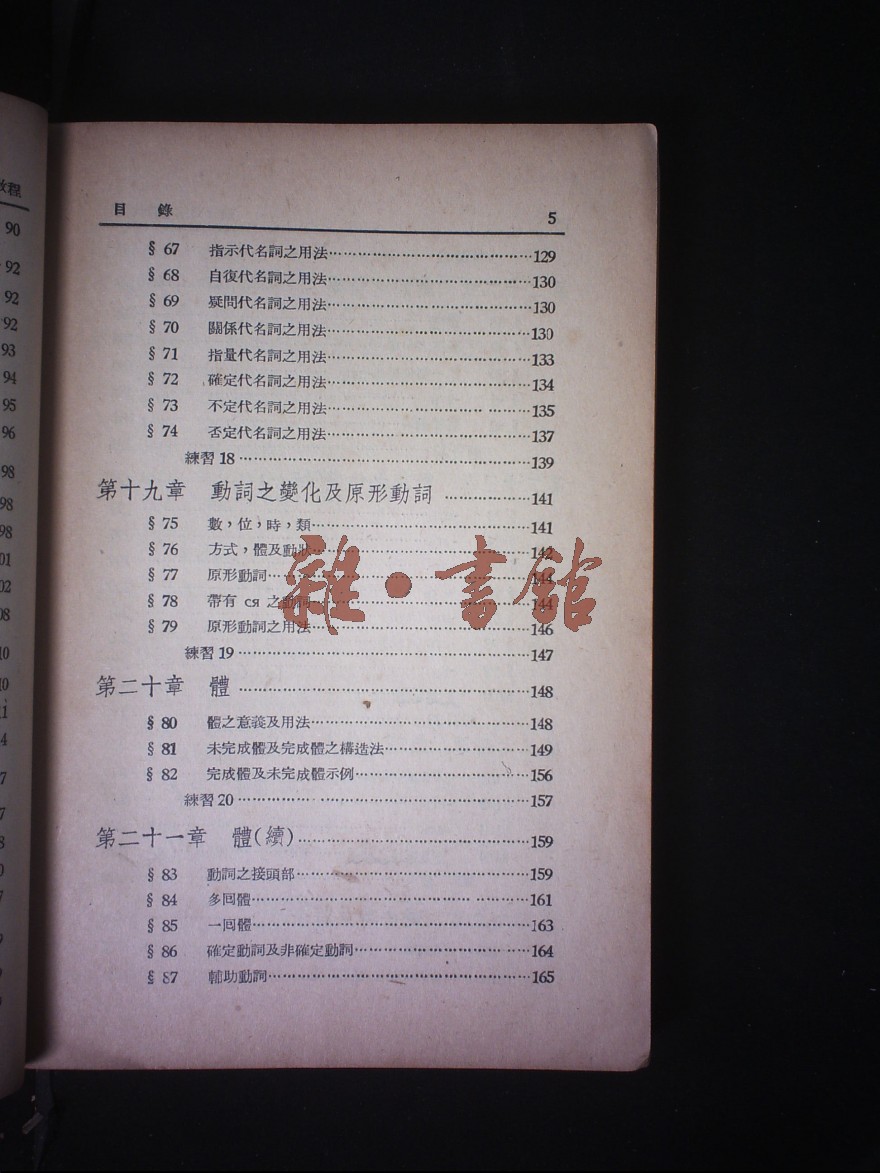 教程
90
92
92
92
93
94
95
96
98
98
98
目 錄 5
§ 67 指示代名詞之用法……………………………………129
§ 68 自復代名詞之用法……………………………………130
§ 69 疑問代名詞之用法……………………………………130
§ 70 關係代名詞之用法……………………………………130
§ 71 指量代名詞之用法……………………………………133
§ 72 確定代名詞之用法……………………………………134
§ 73 不定代名詞之用法……………………………………135
§ 74 否定代名詞之用法……………………………………137
練習 18……………………………………139
第十九章 動詞之變化及原形動詞……………141
§ 75 數，位，時，類……………………………………141
§ 76 方式，體及動狀……………………………………142
§ 77 原形動詞……………………………………144
§ 78 帶有 ся 之動詞……………………………………144
§ 79 原形動詞之用法……………………………………146
練習 19……………………………………147
第二十章 體……………………………………148
§ 80 體之意義及用法……………………………………148
§ 81 未完成體及完成體之構造法……………………………149
§ 82 完成體及未完成體示例……………………………156
練習 20……………………………………157
第二十一章 體(續)……………………………………159
§ 83 動詞之接頭部……………………………………159
§ 84 多囘體……………………………………161
§ 85 一囘體……………………………………163
§ 86 確定動詞及非確定動詞……………………………164
§ 87 輔助動詞……………………………………165
雜·書館